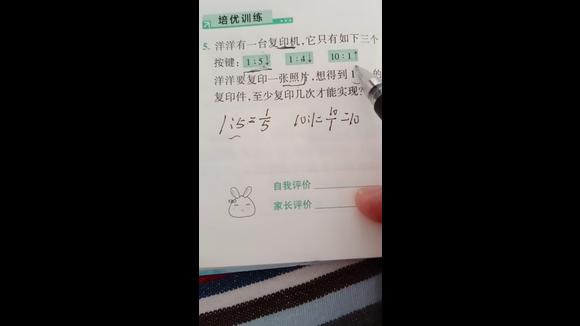 培优训练
5. 洋洋有一台复印机,它只有如下三个
按键: 1:5↓ 1:4↓ 10:1↑
洋洋要复印一张照片,想得到1 的
复印件,至少复印几次才能实现?
1:5=1/5 10:1=10/1=10
自我评价
家长评价